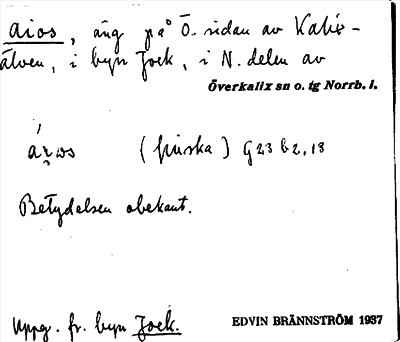 aios, äng på Ö. sidan av Kalix-
älven, i byn Jock, i N. delen av
Överkalix sn o. tg Norrb. l.
(finska) G23 b2, 13
Betydelsen obekant.
Uppg. fr. byn Jock.
EDVIN BRÄNNSTRÖM 1937